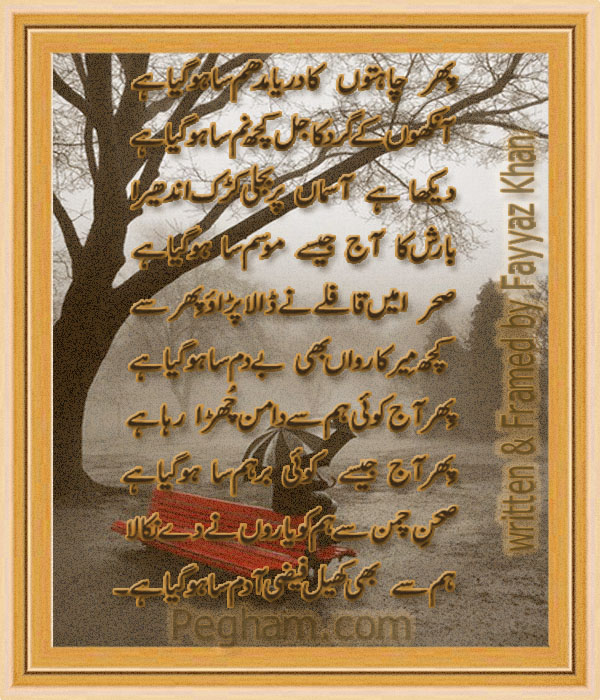 پھر چاہتوں کا دریا مدھم سا ہو گیا ہے
آنکھوں کے گرد کاجل کچھ نم سا ہو گیا ہے
دیکھا ہے آسماں پر بجلی کڑک اندھیرا
بارش کا آج جیسے موسم سا ہو گیا ہے
صحرا میں قافلے نے ڈالا پڑاؤ پھر سے
کچھ میر کارواں بھی بے دم سا ہو گیا ہے
پھر آج کوئی ہم سے دامن چُھڑا رہا ہے
پھر آج جیسے کوئی برہم سا ہو گیا ہے
صحن چمن سے ہم کو یاروں نے دے نکالا
ہم سے بھی کھیل فیضی آدم سا ہو گیا ہے۔
written & Framed by Fayyaz Khan
Pegham.com